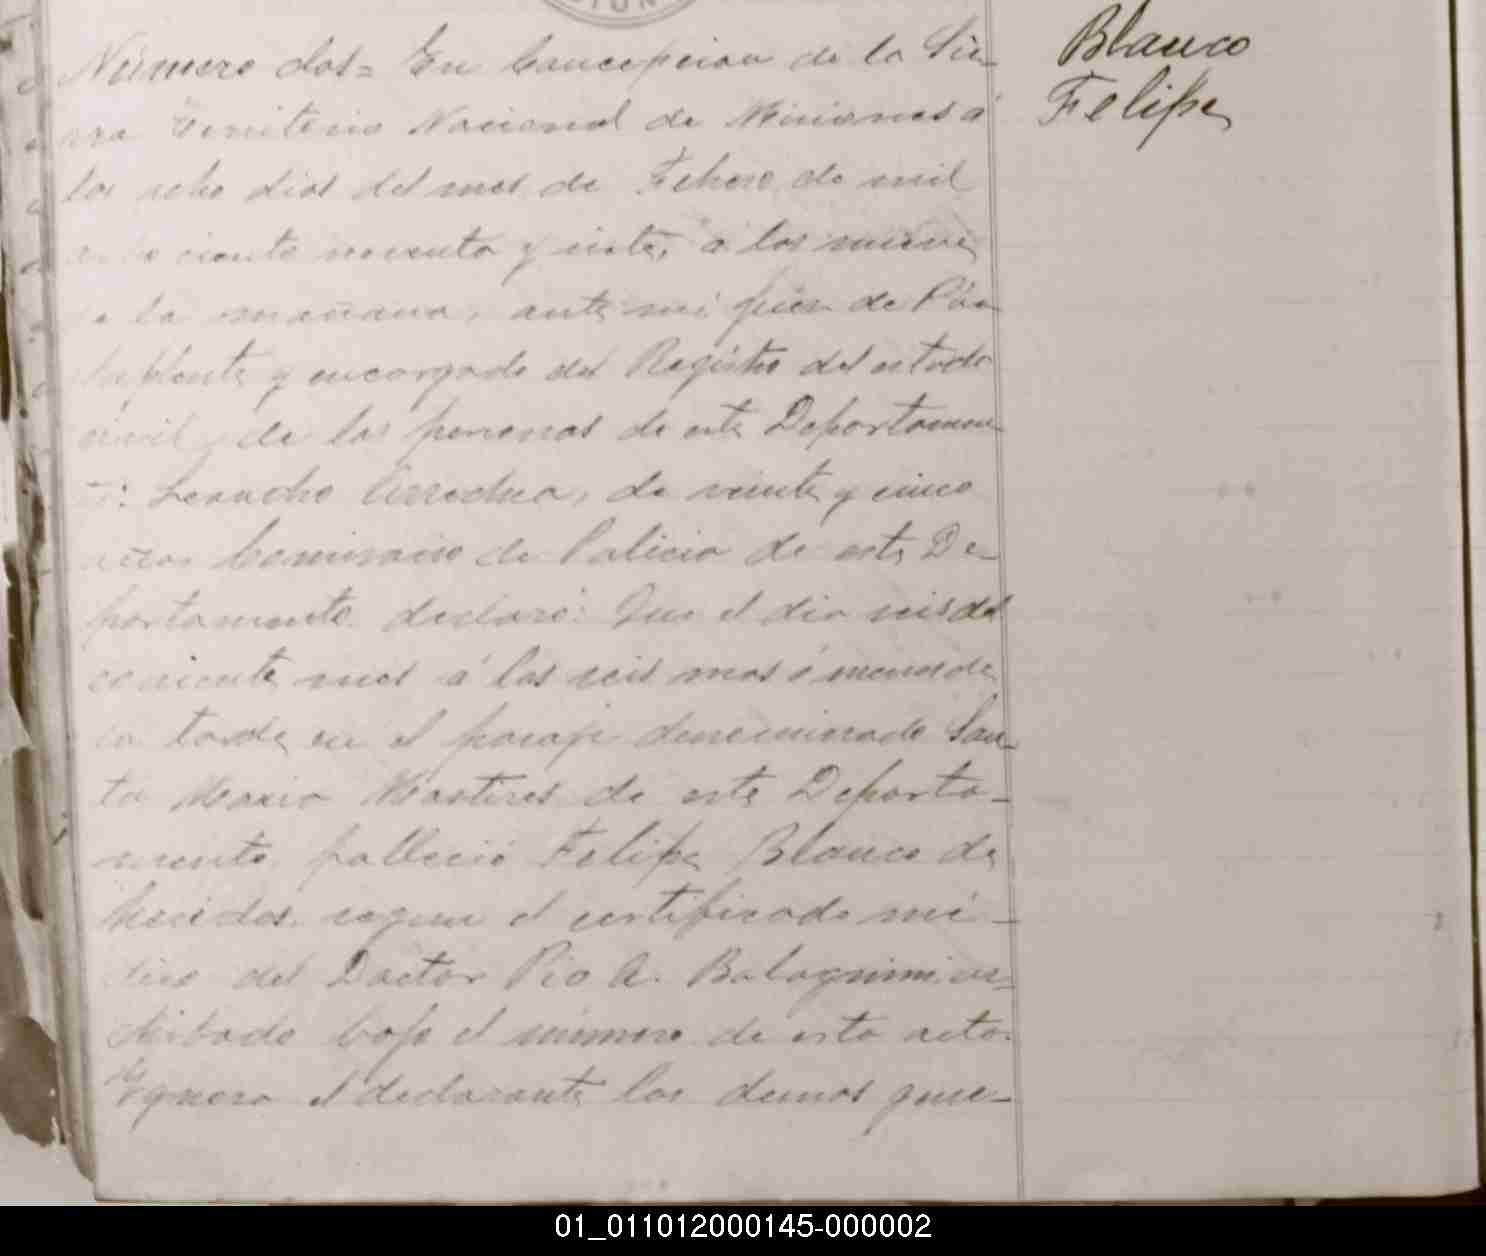 Número dos= En Concepcion de la Sie-
rra Territorio Nacional de Misiones á
los ocho dias del mes de Febrero de mil
ocho ciento noventa y siete, a las nueve
de la mañana, ante mi Juez de Paz
suplente y encargado del Registro del estado
civil de las personas de este Departamen-
to: Leandro Arrechea, de veinte y cinco
años Comisario de Policia de este De-
partamento declaró: Que el dia seis del
corriente mes á las seis mas ó menos de
la tarde en el paraje denominado San-
ta Maria Martires de este Departa-
mento falleció Felipe Blanco de
heridas segun el certificado mé-
dico del Doctor Pio A. ar-
chibado bajo el número de esta acta.
Ygnora el declarante los demas gene-
Blanco
Felipe
01_011012000145-000002